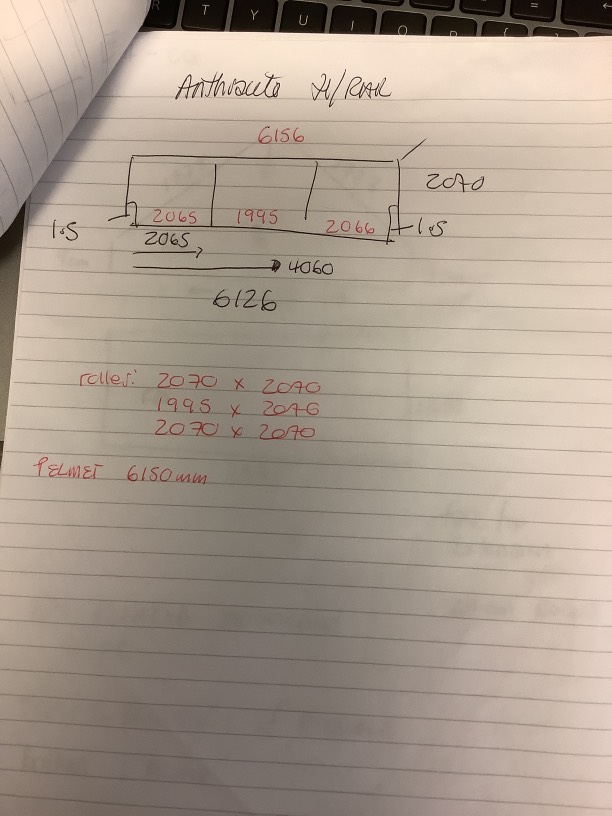 Anthracite
6156
2070
2065 1995 2066
1.5 1.5
2065
4060
6126
roller: 2070 x 2070
1995 x 2070
2070 x 2070
PELMET 6150mm